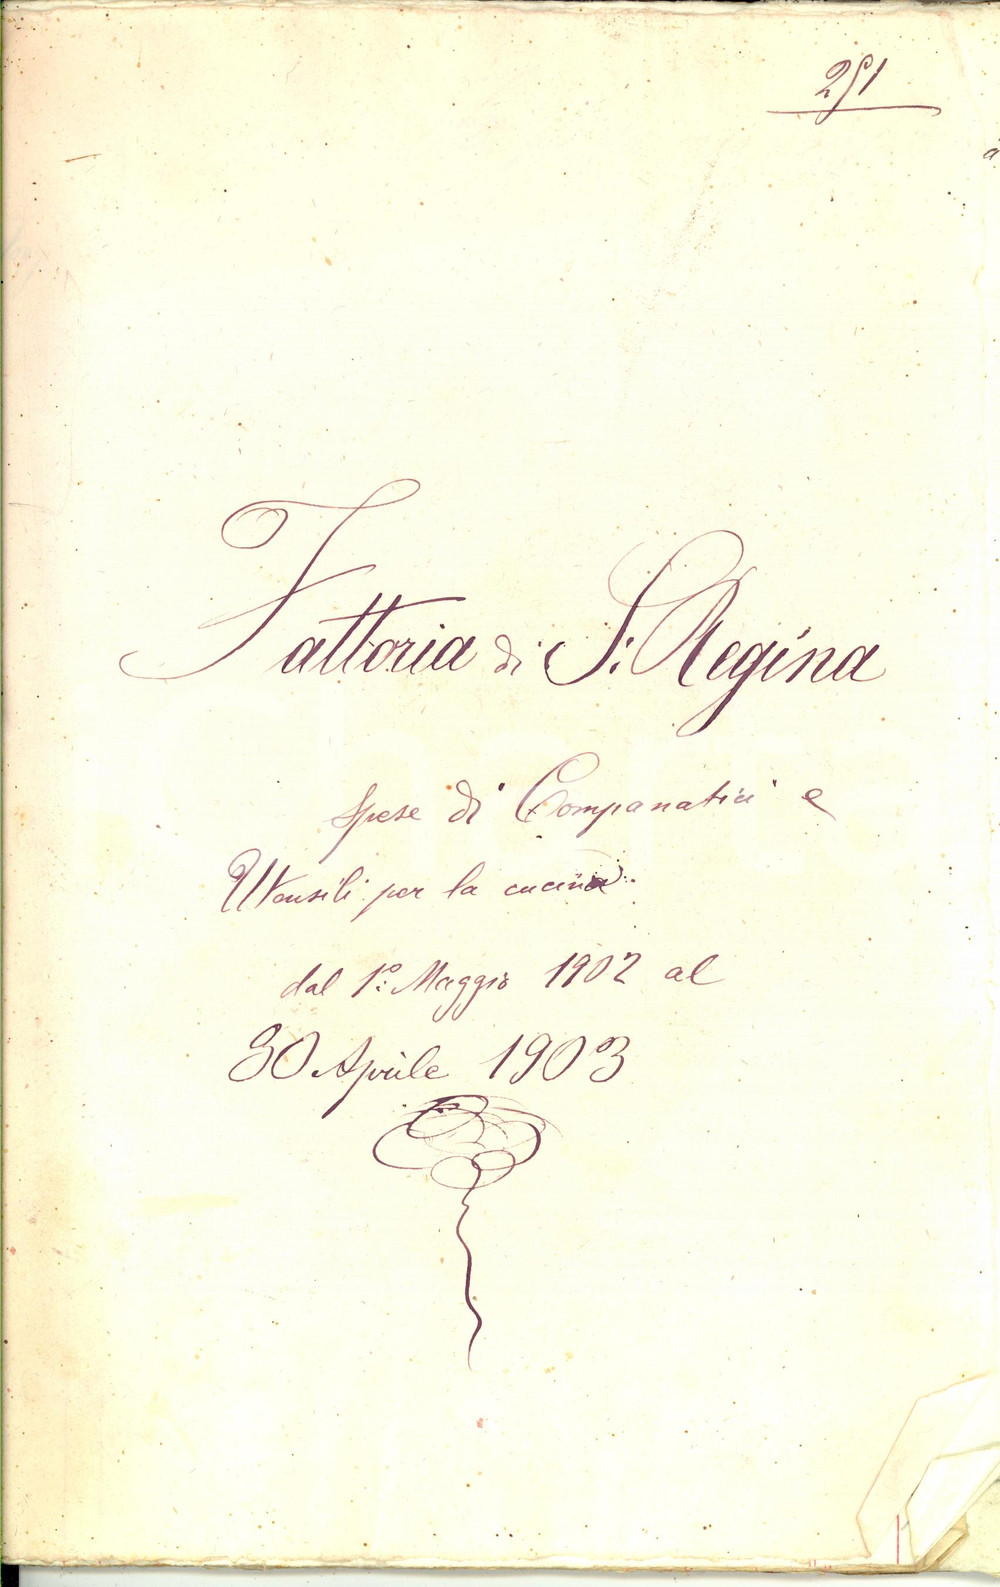 251
Fattoria di S: Regina
Spese di Companatici e
Utensili per la cucina
dal 1º: Maggio 1902 al
30 Aprile 1903